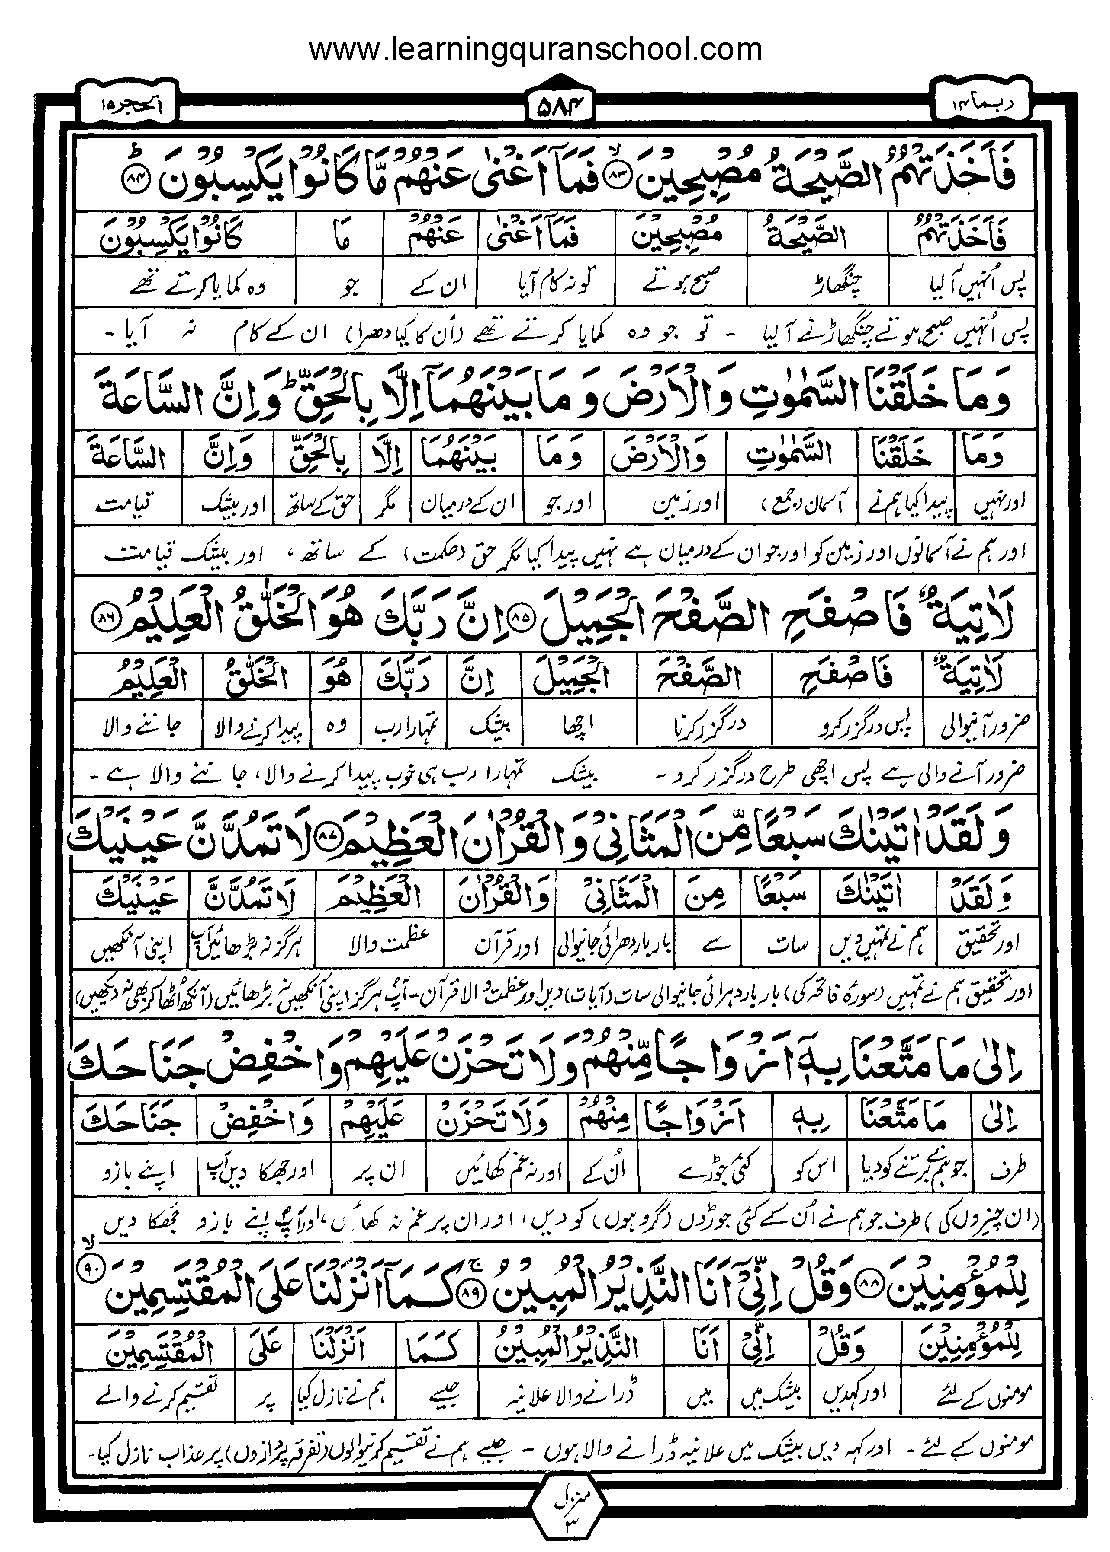 www.learningquranschool.com
ربما ۱۴
۵۸۴
الحجر ۱۵
فَاَخَذَتْهُمُ الصَّيْحَةُ مُصْبِحِيْنَ ۙ۸۳ فَمَاۤ اَغْنٰى عَنْهُمْ مَّا كَانُوْا يَكْسِبُوْنَ ؕ۸۴
فَاَخَذَتْهُمُ الصَّيْحَةُ مُصْبِحِيْنَ فَمَاۤ اَغْنٰى عَنْهُمْ مَا كَانُوْا يَكْسِبُوْنَ
پس اُنہیں آلیا چنگھاڑ صبح ہوتے تو نہ کام آیا ان کے جو وہ کمایا کرتے تھے
پس اُنہیں صبح ہوتے چنگھاڑ نے آلیا - تو جو وہ کمایا کرتے تھے (اُن کا کیا دھرا) ان کے کام نہ آیا -
وَمَا خَلَقْنَا السَّمٰوٰتِ وَالْاَرْضَ وَمَا بَيْنَهُمَاۤ اِلَّا بِالْحَقِّ ؕ وَاِنَّ السَّاعَةَ
وَمَا خَلَقْنَا السَّمٰوٰتِ وَالْاَرْضَ وَمَا بَيْنَهُمَاۤ اِلَّا بِالْحَقِّ وَاِنَّ السَّاعَةَ
اور نہیں پیدا کیا ہم نے آسمان (جمع) اور زمین اور جو ان کے درمیان مگر حق کے ساتھ اور بیشک قیامت
اور ہم نے آسمانوں اور زمین کو اور جو ان کے درمیان ہے نہیں پیدا کیا مگر حق (حکمت) کے ساتھ، اور بیشک قیامت
لَاٰتِيَةٌ فَاصْفَحِ الصَّفْحَ الْجَمِيْلَ ۸۵ اِنَّ رَبَّكَ هُوَ الْخَلّٰقُ الْعَلِيْمُ ۸۶
لَاٰتِيَةٌ فَاصْفَحِ الصَّفْحَ الْجَمِيْلَ اِنَّ رَبَّكَ هُوَ الْخَلّٰقُ الْعَلِيْمُ
ضرور آنیوالی پس درگزر کرو درگزر کرنا اچھا بیشک تمہارا رب وہ پیدا کرنے والا جاننے والا
ضرور آنے والی ہے پس اچھی طرح درگزر کرو - بیشک تمہارا رب ہی خوب پیدا کرنے والا، جاننے والا ہے -
وَلَقَدْ اٰتَيْنٰكَ سَبْعًا مِّنَ الْمَثَانِيْ وَالْقُرْاٰنَ الْعَظِيْمَ ۸۷ لَا تَمُدَّنَّ عَيْنَيْكَ
وَلَقَدْ اٰتَيْنٰكَ سَبْعًا مِنَ الْمَثَانِيْ وَالْقُرْاٰنَ الْعَظِيْمَ لَا تَمُدَّنَّ عَيْنَيْكَ
اور تحقیق ہم نے تمہیں دیں سات سے بار بار دھرائی جانیوالی اور قرآن عظمت والا ہرگز نہ بڑھائیں آپ اپنی آنکھیں
اور تحقیق ہم نے تمہیں (سورۂ فاتحہ کی) بار بار دہرائی جانیوالی سات (آیات) دیں اور عظمت والا قرآن - آپ ہرگز اپنی آنکھیں نہ بڑھائیں (آنکھ اُٹھا کر بھی نہ دیکھیں)
اِلٰى مَا مَتَّعْنَا بِهٖۤ اَزْوَاجًا مِّنْهُمْ وَلَا تَحْزَنْ عَلَيْهِمْ وَاخْفِضْ جَنَاحَكَ
اِلٰى مَا مَتَّعْنَا بِهٖ اَزْوَاجًا مِنْهُمْ وَلَا تَحْزَنْ عَلَيْهِمْ وَاخْفِضْ جَنَاحَكَ
طرف جو ہم نے برتنے کو دیا اس کو کئی جوڑے اُن کے اور نہ غم کھائیں ان پر اور جھکا دیں آپ اپنے بازو
(ان چیزوں کی) طرف جو ہم نے اُن کے کئی جوڑوں (گروہوں) کو دیں، اور ان پر غم نہ کھائیں، اور آپ اپنے بازو جھکا دیں
لِلْمُؤْمِنِيْنَ ۸۸ وَقُلْ اِنِّيْۤ اَنَا النَّذِيْرُ الْمُبِيْنُ ۚ۸۹ كَمَاۤ اَنْزَلْنَا عَلَى الْمُقْتَسِمِيْنَ ۙ۹۰
لِلْمُؤْمِنِيْنَ وَقُلْ اِنِّيْ اَنَا النَّذِيْرُ الْمُبِيْنُ كَمَاۤ اَنْزَلْنَا عَلَى الْمُقْتَسِمِيْنَ
مومنوں کے لئے اور کہدیں بیشک میں میں ڈرانے والا علانیہ جیسے ہم نے نازل کیا پر تقسیم کرنے والے
مومنوں کے لئے - اور کہہ دیں بیشک میں علانیہ ڈرانے والا ہوں - جیسے ہم نے تقسیم کرنیوالوں (تفرقہ پردازوں) پر عذاب نازل کیا -
منزل ۳